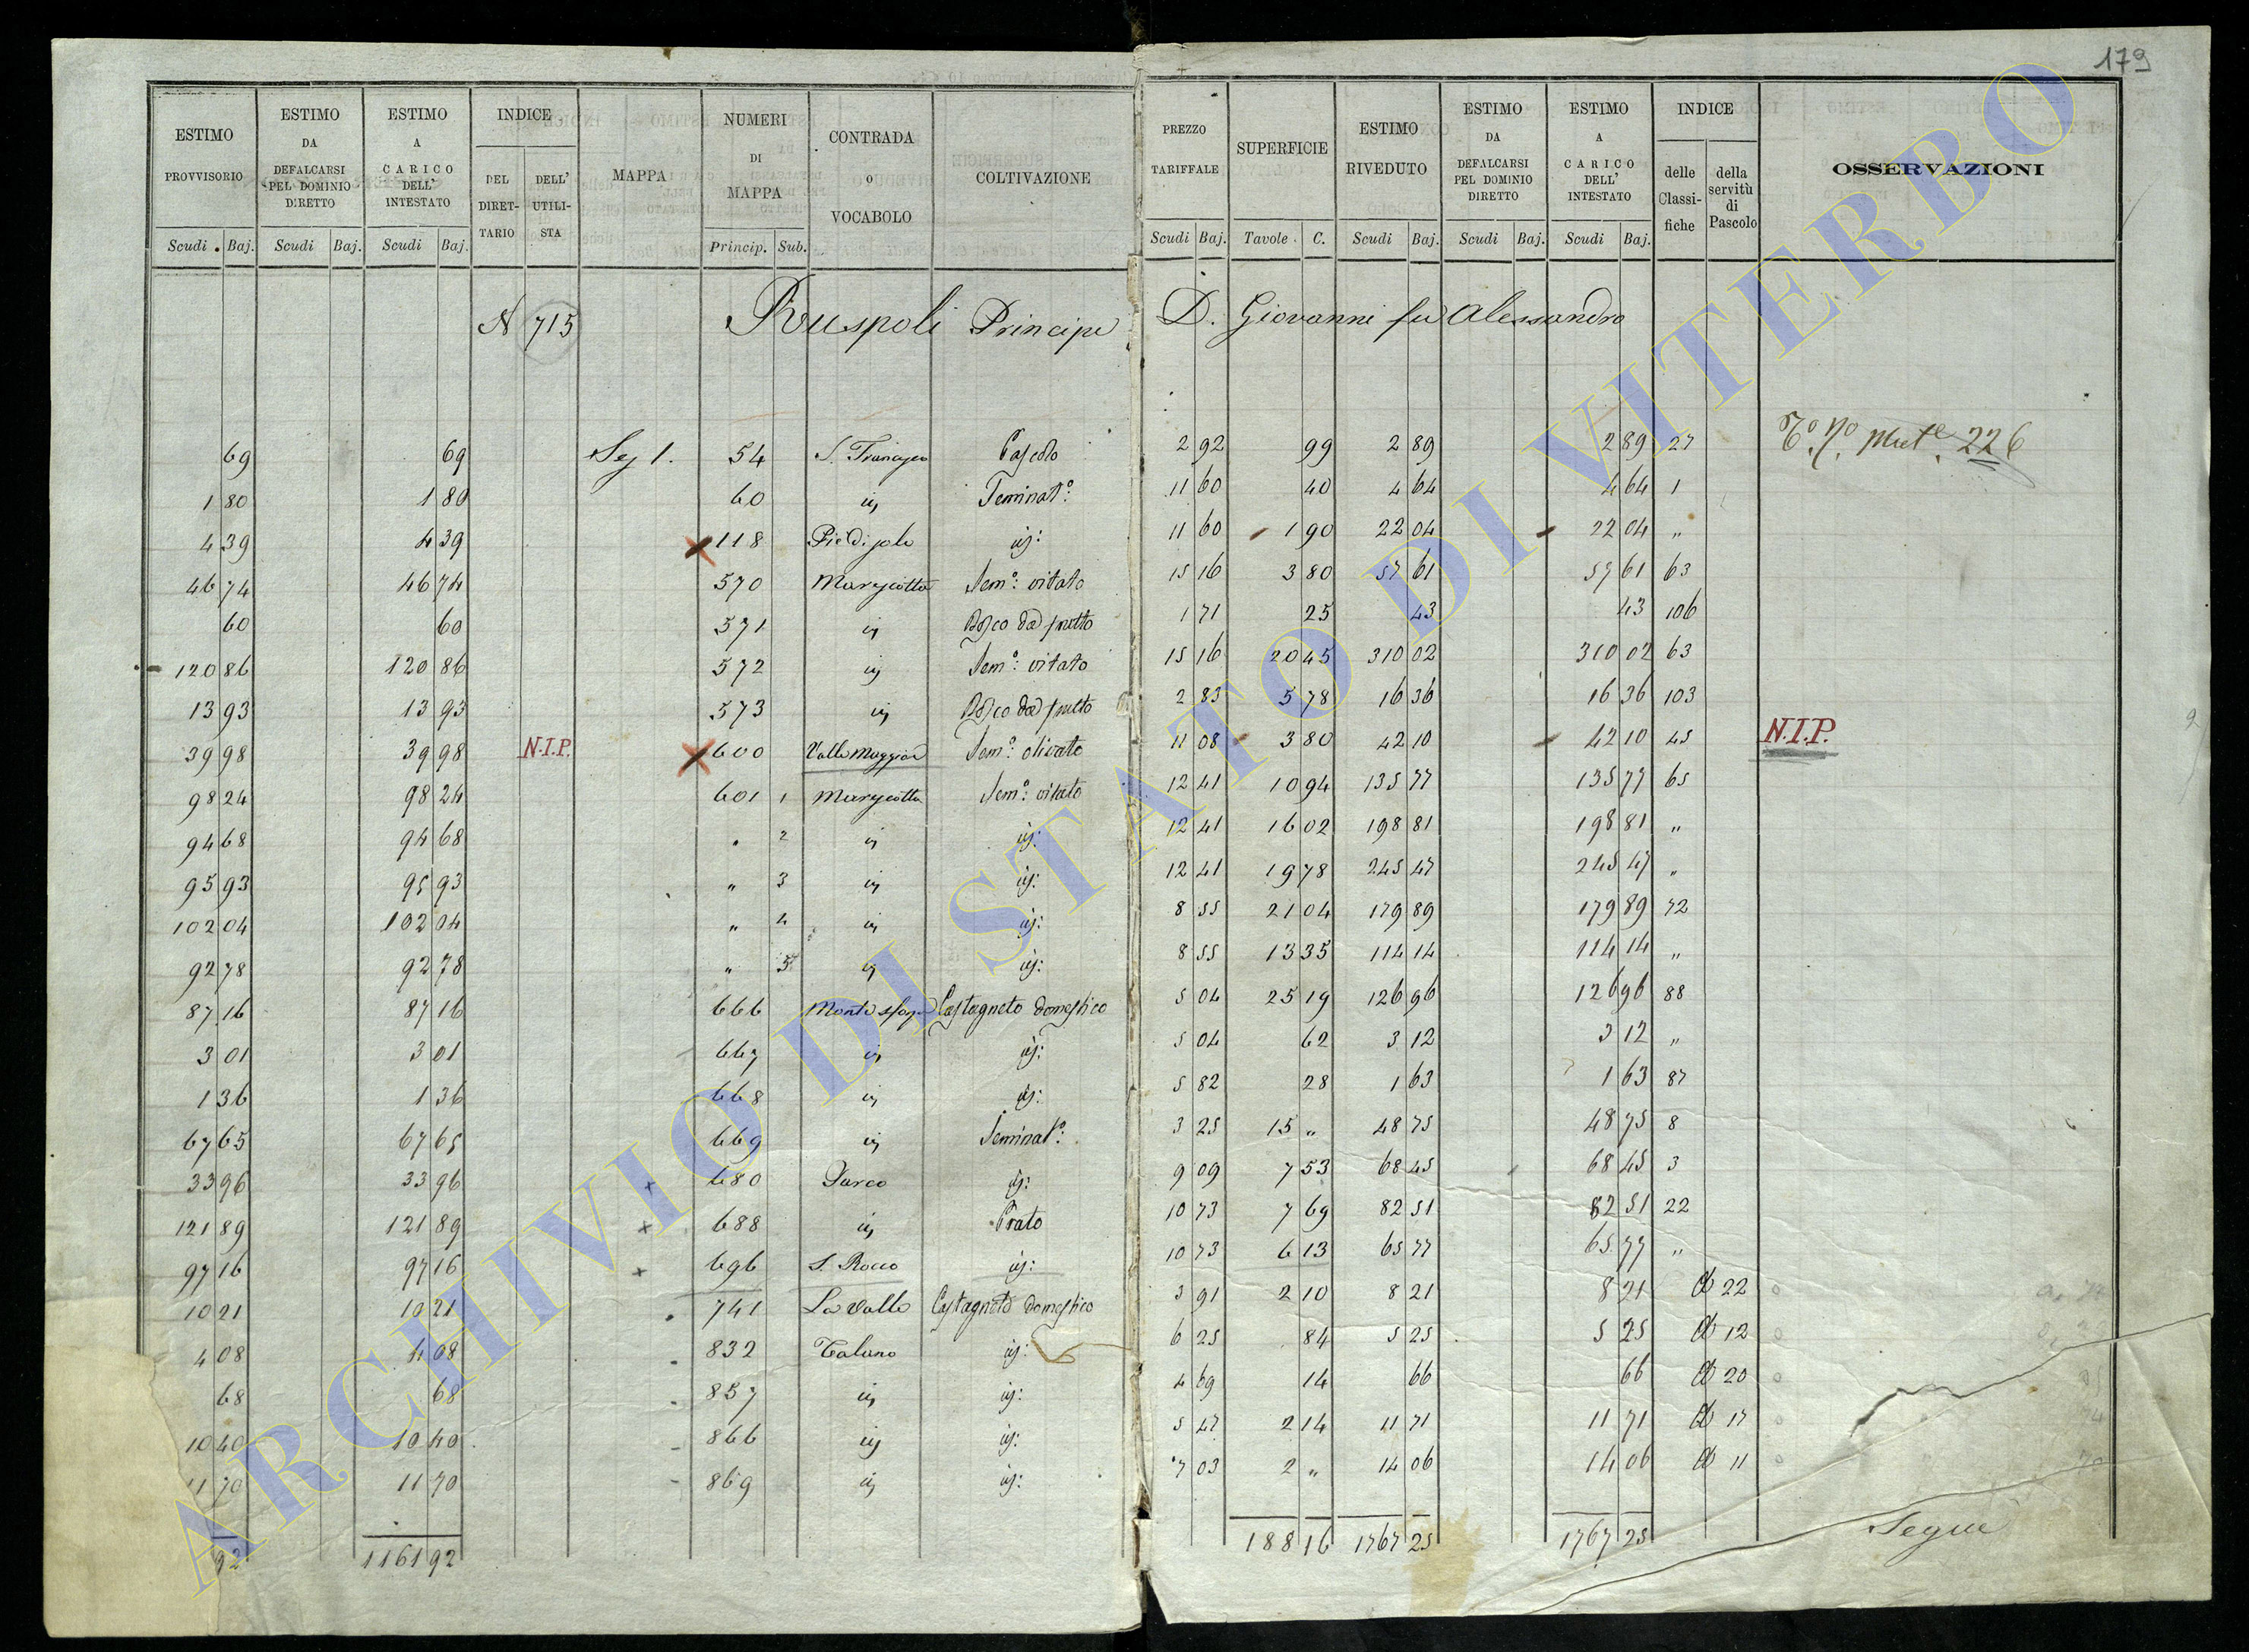 179
ESTIMO PROVVISORIO | ESTIMO DA DEFALCARSI PEL DOMINIO DIRETTO | ESTIMO A CARICO DELL' INTESTATO | INDICE DEL DIRETTARIO | DELL' UTILISTA | MAPPA | NUMERI DI MAPPA | CONTRADA O VOCABOLO | COLTIVAZIONE | PREZZO TARIFFALE | SUPERFICIE | ESTIMO RIVEDUTO | ESTIMO DA DEFALCARSI PEL DOMINIO DIRETTO | ESTIMO A CARICO DELL' INTESTATO | INDICE delle Classifiche | della servitù di Pascolo | OSSERVAZIONI
Scudi Baj. | Scudi Baj. | Scudi Baj. | Princip. Sub. | Scudi Baj. | Tavole C. | Scudi Baj. | Scudi Baj. | Scudi Baj.
N 715 Ruspoli Principe D. Giovanni fu Alessandro
69 | 69 | Sez 1. | 54 | S. Francesco | 2 92 | 99 | 2 89 | 2 89 | 27 | 226
1 80 | 1 80 | 60 | id | Seminat.º | 11 60 | 40 | 4 64 | 4 64 | 1
4 39 | 4 39 | 118 | id: | 11 60 | 1 90 | 22 04 | 22 04 | "
46 74 | 46 74 | 570 | Sem.º: vitato | 15 16 | 3 80 | 57 61 | 57 61 | 63
60 | 60 | 571 | id | Bosco da frutto | 1 71 | 25 | 43 | 43 | 106
120 86 | 120 86 | 572 | id | Sem.º: vitato | 15 16 | 20 45 | 310 02 | 310 02 | 63
13 93 | 13 93 | 573 | id | Bosco da frutto | 2 83 | 5 78 | 16 36 | 16 36 | 103
39 98 | 39 98 | N.I.P. | 600 | Valle Maggiore | Sem.º: olivato | 11 08 | 3 80 | 42 10 | 42 10 | 45 | N.I.P.
98 24 | 98 24 | 601 1 | Sem.º: vitato | 12 41 | 10 94 | 135 77 | 135 77 | 65
94 68 | 94 68 | " 2 | id | id: | 12 41 | 16 02 | 198 81 | 198 81 | "
95 93 | 95 93 | " 3 | id | id: | 12 41 | 19 78 | 245 47 | 245 47 | "
102 04 | 102 04 | " 4 | id | id: | 8 55 | 21 04 | 179 89 | 179 89 | 72
92 78 | 92 78 | " 5 | id | id: | 8 55 | 13 35 | 114 14 | 114 14 | "
87 16 | 87 16 | 666 | Castagneto domestico | 5 04 | 25 19 | 126 96 | 126 96 | 88
3 01 | 3 01 | 667 | id | id: | 5 04 | 62 | 3 12 | 3 12 | "
1 36 | 1 36 | 668 | id | id: | 5 82 | 28 | 1 63 | 1 63 | 87
67 65 | 67 65 | 669 | id | Seminat.º: | 3 25 | 15 " | 48 75 | 48 75 | 8
33 96 | 33 96 | x | 680 | Parco | id: | 9 09 | 7 53 | 68 45 | 68 45 | 3
121 89 | 121 89 | x | 688 | id | Prato | 10 73 | 7 69 | 82 51 | 82 51 | 22
97 16 | 97 16 | x | 696 | S. Rocco | id: | 10 73 | 6 13 | 65 77 | 65 77 | "
10 21 | 10 21 | 741 | La Valle | Castagneto domestico | 3 91 | 2 10 | 8 21 | 8 21 | 22
4 08 | 4 08 | 832 | Talano | id: | 6 25 | 84 | 5 25 | 5 25 | 12
68 | 68 | 857 | id | id: | 4 69 | 14 | 66 | 66 | 20
10 40 | 10 40 | 866 | id | id: | 5 47 | 2 14 | 11 71 | 11 71 | 17
11 70 | 11 70 | 869 | id | id: | 7 03 | 2 " | 14 06 | 14 06 | 11
92 | 1161 92 | 188 16 | 1767 25 | 1767 25 | Segue
ARCHIVIO DI STATO DI VITERBO